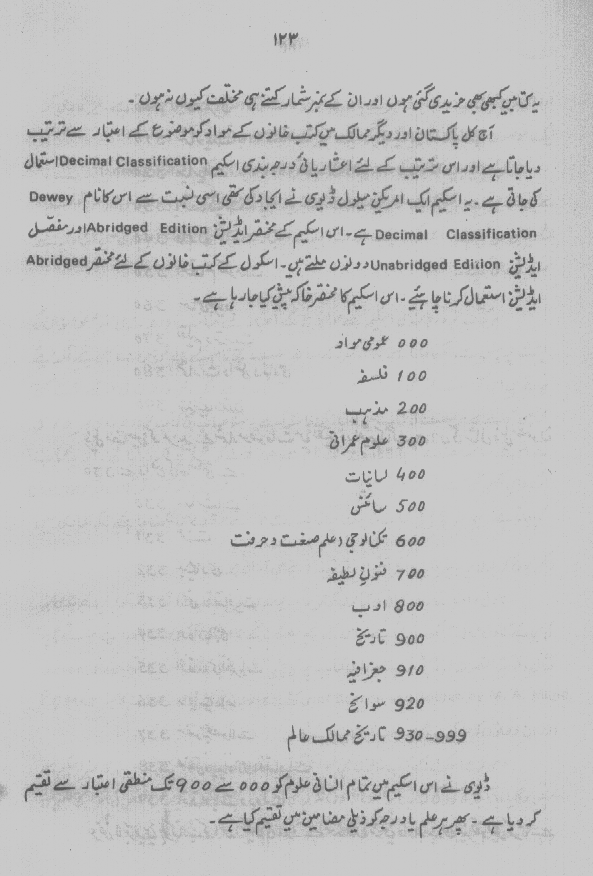 ۱۲۳
یہ کتابیں کبھی بھی خریدی گئی ہوں اور ان کے نمبر شمار کتنے ہی مختلف کیوں نہ ہوں۔
آج کل پاکستان اور دیگر ممالک میں کتب خانوں کے مواد کو موضوع کے اعتبار سے ترتیب
دیا جاتا ہے اور اس ترتیب کے لئے اعشاریائی درجہ بندی اسکیم Decimal Classification استعمال
کی جاتی ہے۔ یہ اسکیم ایک امریکن میلول ڈیوی نے ایجاد کی تھی اسی نسبت سے اس کا نام Dewey
Decimal Classification ہے۔ اس اسکیم کے مختصر ایڈیشن Abridged Edition اور مفصل
ایڈیشن Unabridged Edition دونوں ملتے ہیں۔ اسکول کے کتب خانوں کے لئے مختصر Abridged
ایڈیشن استعمال کرنا چاہئیے۔ اس اسکیم کا مختصر خاکہ پیش کیا جا رہا ہے۔
000 عمومی مواد
100 فلسفہ
200 مذہب
300 علوم عمرانی
400 لسانیات
500 سائنس
600 تکنالوجی (علم صنعت و حرفت
700 فنونِ لطیفہ
800 ادب
900 تاریخ
910 جغرافیہ
920 سوانح
930-999 تاریخ ممالک عالم
ڈیوی نے اس اسکیم میں تمام انسانی علوم کو 000 سے 900 تک منطقی اعتبار سے تقسیم
کر دیا ہے۔ پھر ہر علم یا درجہ کو ذیلی مضامین میں تقسیم کیا ہے۔